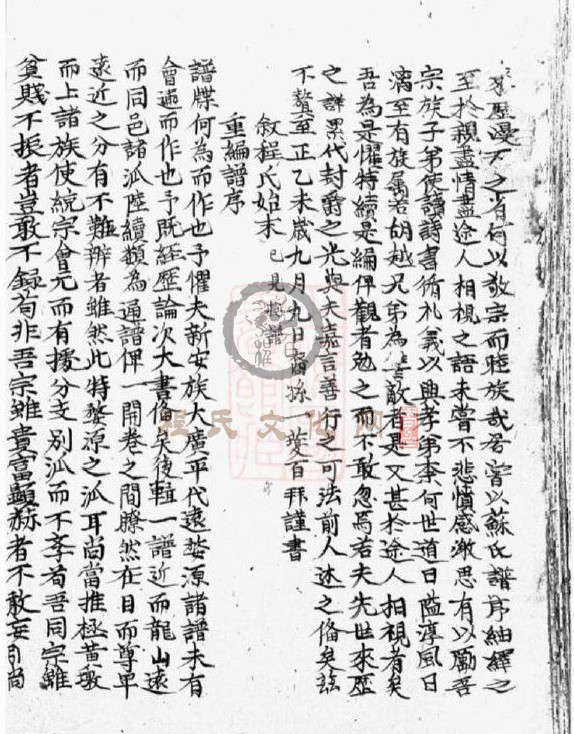 歷漫不之省何以敬宗而睦族哉居嘗以蘇氏譜序紬繹之
至於親盡情盡途人相視之語未嘗不悲憤感激思有以勵吾
宗族子弟使讀詩書脩礼義以興孝弟柰何世道日隘淳風日
漓至有族属若胡越兄弟為讐敵者是又甚於途人相視者矣
吾為是懼特續是編俾觀者勉之而不敢忽焉若夫先世來歷
之詳累代封爵之光與夫嘉言善行之可法前人述之俻矣玆
不贅至正乙未歲九月九日裔孫一夔百拜謹書
敘程氏始末 已見舊譜
重編譜序
譜牒何為而作也予懼夫新安族大廣平代遠婺源諸譜未有
會通而作也予既經歷論次大書俻矣後輯一譜近而龍山遠
而同邑諸派陸續類為通譜俾一開卷之間瞭然在目而尊卑
遠近之分有不難辨者雖然此特婺源之派耳尚當推極黄墩
而上諸族使統宗會元而有援分支別派而不紊苟吾同宗雖
貧賤不振者豈敢不録苟非吾宗雖貴富顯赫者不敢妄引尚
程氏文化网